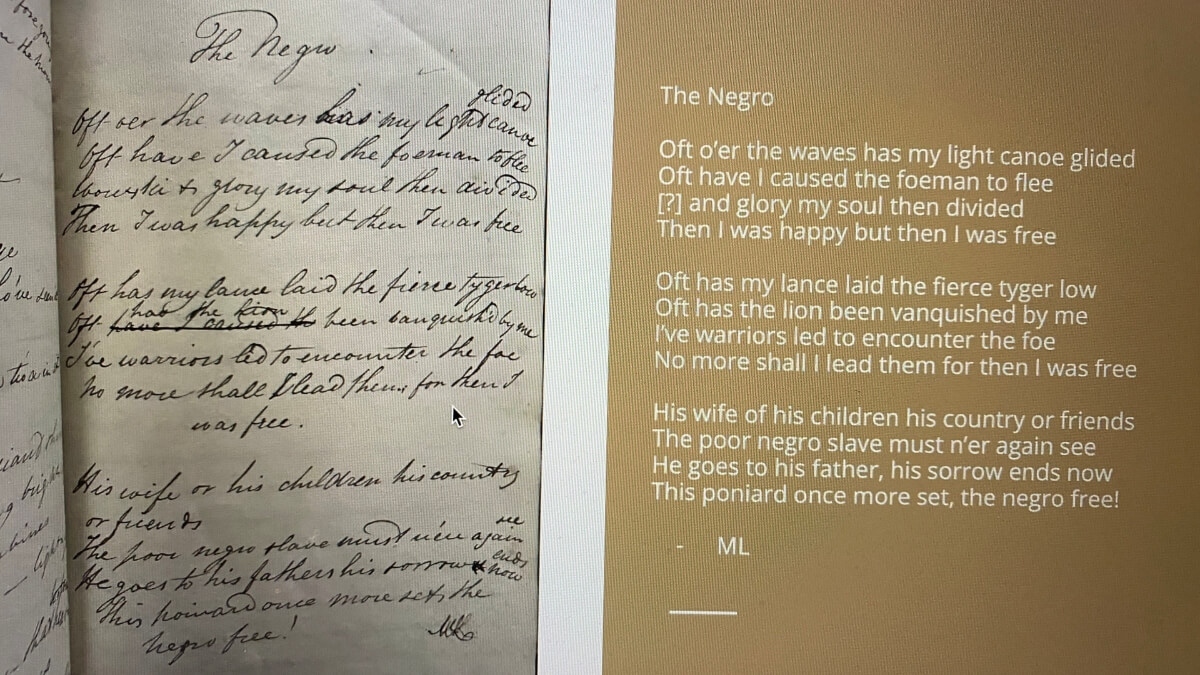 The Negro
Oft oer the waves has my light canoe glided
Oft have I caused the foeman to flee
& glory my soul then divided
Then I was happy but then I was free
Oft has my lance laid the fierce tyger low
Oft has the lion been vanquish'd by me
I've warriors led to encounter the foe
No more shall I lead them, for then I
was free.
His wife or his children his country
or friends
The poor negro slave must n'eer again see
He goes to his fathers his sorrow ends now
This poniard once more sets the
negro free!
ML
The Negro
Oft o'er the waves has my light canoe glided
Oft have I caused the foeman to flee
[?] and glory my soul then divided
Then I was happy but then I was free
Oft has my lance laid the fierce tyger low
Oft has the lion been vanquished by me
I've warriors led to encounter the foe
No more shall I lead them for then I was free
His wife of his children his country or friends
The poor negro slave must n'er again see
He goes to his father, his sorrow ends now
This poniard once more set, the negro free!
- ML